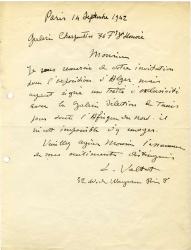 Paris 14 Septembre 1942
Galerie Charpentier 76 Fg St Honoré
Monsieur
Je vous remercie de votre invitation
pour l'exposition d'Alger mais
ayant signé un traité d'exclusivité
avec la Galerie Sélection de Tunis
pour toute l'Afrique du Nord il
m'est impossible d'y envoyer.
Veuillez agréer Monsieur l'assurance
de mes sentiments distingués
L. Valtat
32 av. de Wagram Paris 8e